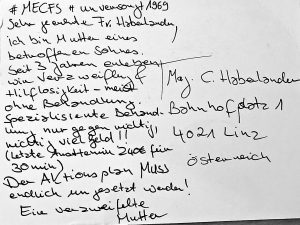 # MECFS # unversorgt 1969
Sehr geehrte Fr. Haberlander,
ich bin Mutter eines
betroffenen Sohnes.
Seit 3 Jahren erleben
wir Verzweiflung &
Hilflosigkeit – meist
ohne Behandlung.
Spezialisierte Behand-
nur gegen
viel Geld!!
(letzte 240€ für
30 min)
Der Aktionsplan MUSS
endlich umgesetzt werden!
Eine verzweifelte
Mutter
Mag. C. Haberlander
Bahnhofplatz 1
4021 Linz
Österreich